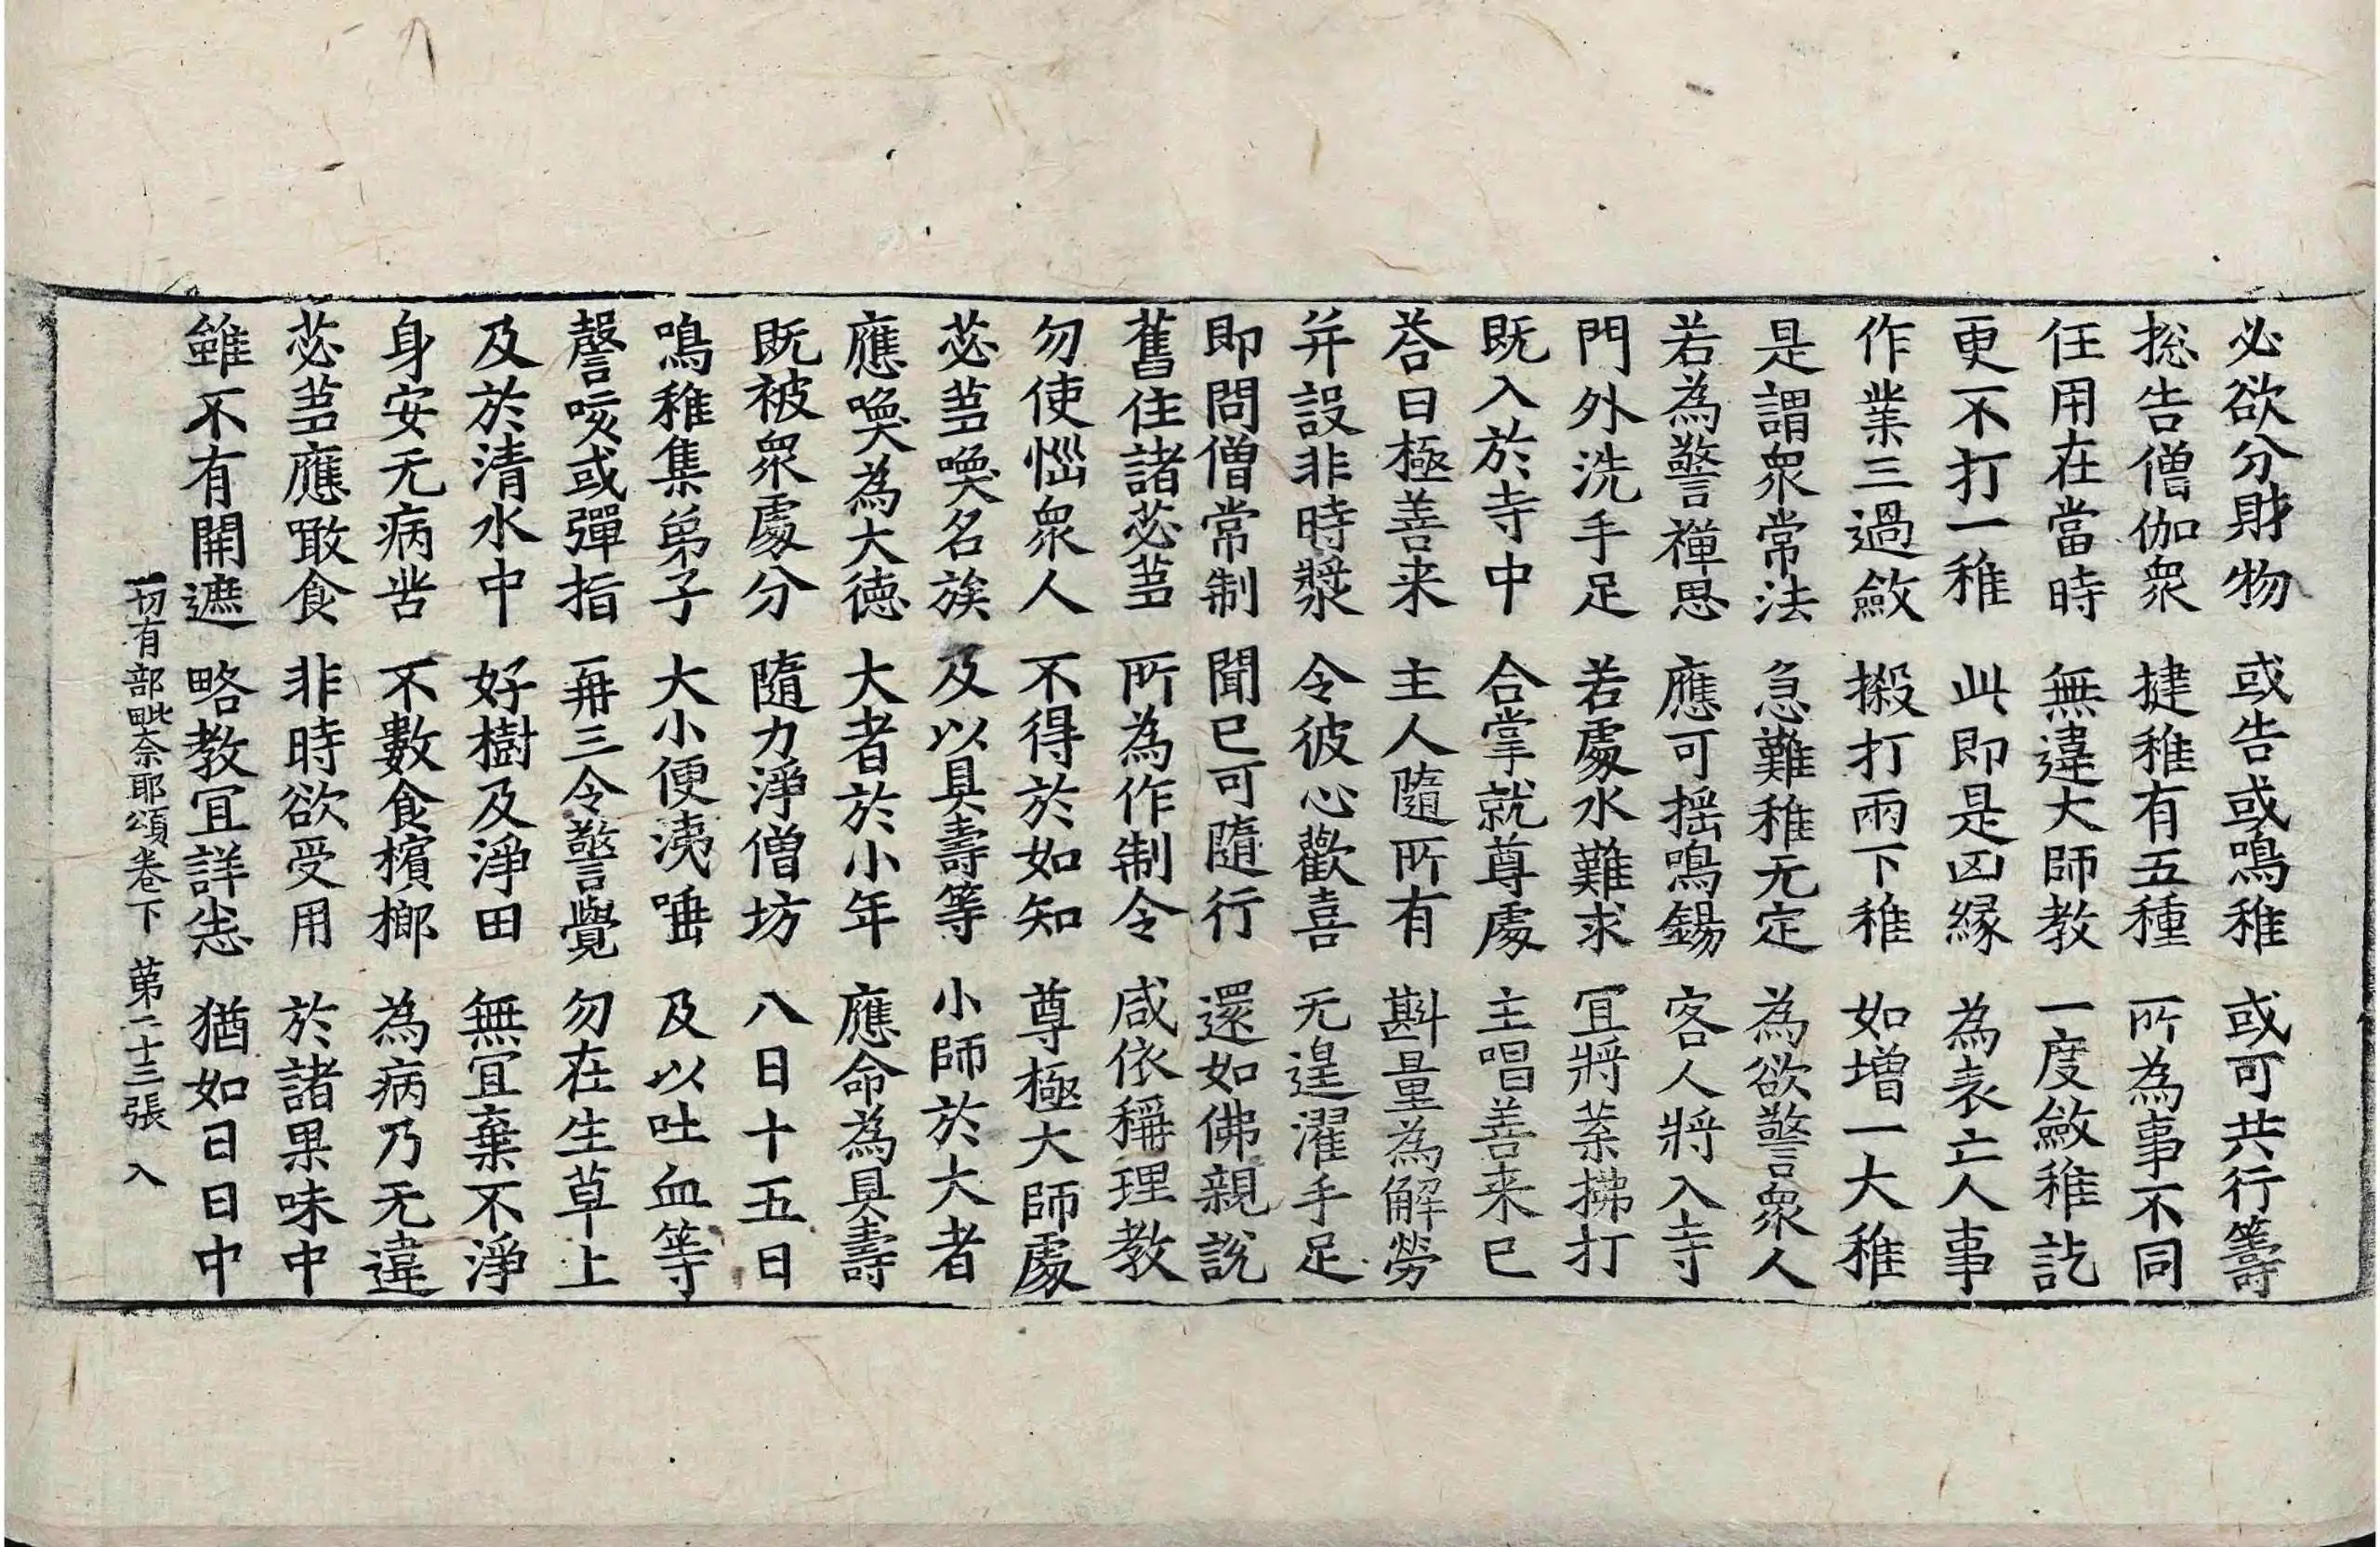 必欲分財物　或告或鳴稚　或可共行籌
揔告僧伽衆　揵稚有五種　所為事不同
任用在當時　無違大師教　一度斂稚訖
更不打一稚　此即是㐫緣　為表亡人事
作業三過斂　搬打兩下稚　如增一大稚
是謂衆常法　急難稚无定　為欲警衆人
若為警禪思　應可搖鳴錫　客人將入寺
門外洗手足　若處水難求　宜將葉拂打
既入於寺中　合掌就尊處　主唱善来已
荅曰極善来　主人隨所有　斟量為解勞
并設非時漿　令彼心歡喜　无遑濯手足
即問僧常制　聞已可隨行　還如佛親說
舊住諸苾蒭　所為作制令　咸依稱理教
勿使惱衆人　不得於如知　尊極大師處
苾蒭喚名族　及以具壽等　小師於大者
應喚為大德　大者於小年　應命為具壽
既被衆處分　隨力淨僧坊　八日十五日
鳴稚集弟子　大小便洟唾　及以吐血等
謦咳或彈指　再三令警覺　勿在生草上
及於清水中　好樹及淨田　無宜棄不淨
身安无病苦　不數食檳榔　為病乃无違
苾蒭應噉食　非時欲受用　於諸果味中
雖不有開遮　略教宜詳悉　猶如日日中
一切有部毗奈耶頌卷下　第二十三張　入